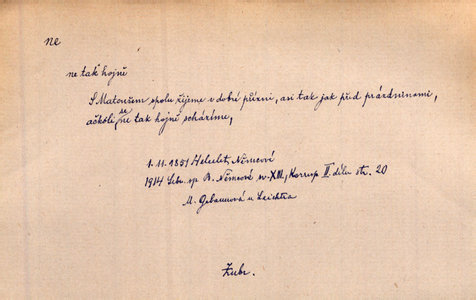 ne
ne tak hojně
S Matoušem spolu žijeme v dobré přízni, asi tak jak před prázdninami,
ačkoli se ne tak hojně scházíme,
1. 11. 1851 Němcové
1914 Sebr. sp. B. Němcové sv. XIII, Korresp. II. dílu str. 20
M. Gebauerová u Laichtra
Zubr.